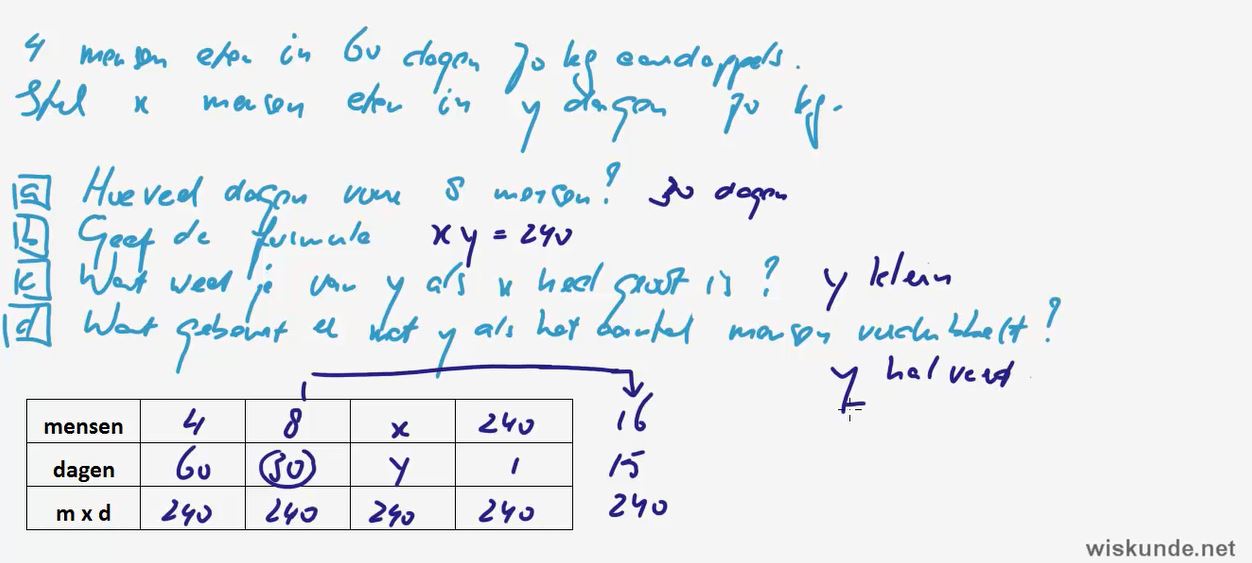 4 mensen eten in 60 dagen 70 kg aardappels.
Stel x mensen eten in y dagen 70 kg.
a Hoeveel dagen voor 8 mensen? 30 dagen
b Geef de formule x y = 240
c Wat weet je van y als x heel groot is? y klein
d Wat gebeurt er met y als het aantal mensen verdubbelt?
y halveert
mensen 4 8 x 240 16
dagen 60 30 y 1 15
m x d 240 240 240 240 240
wiskunde.net